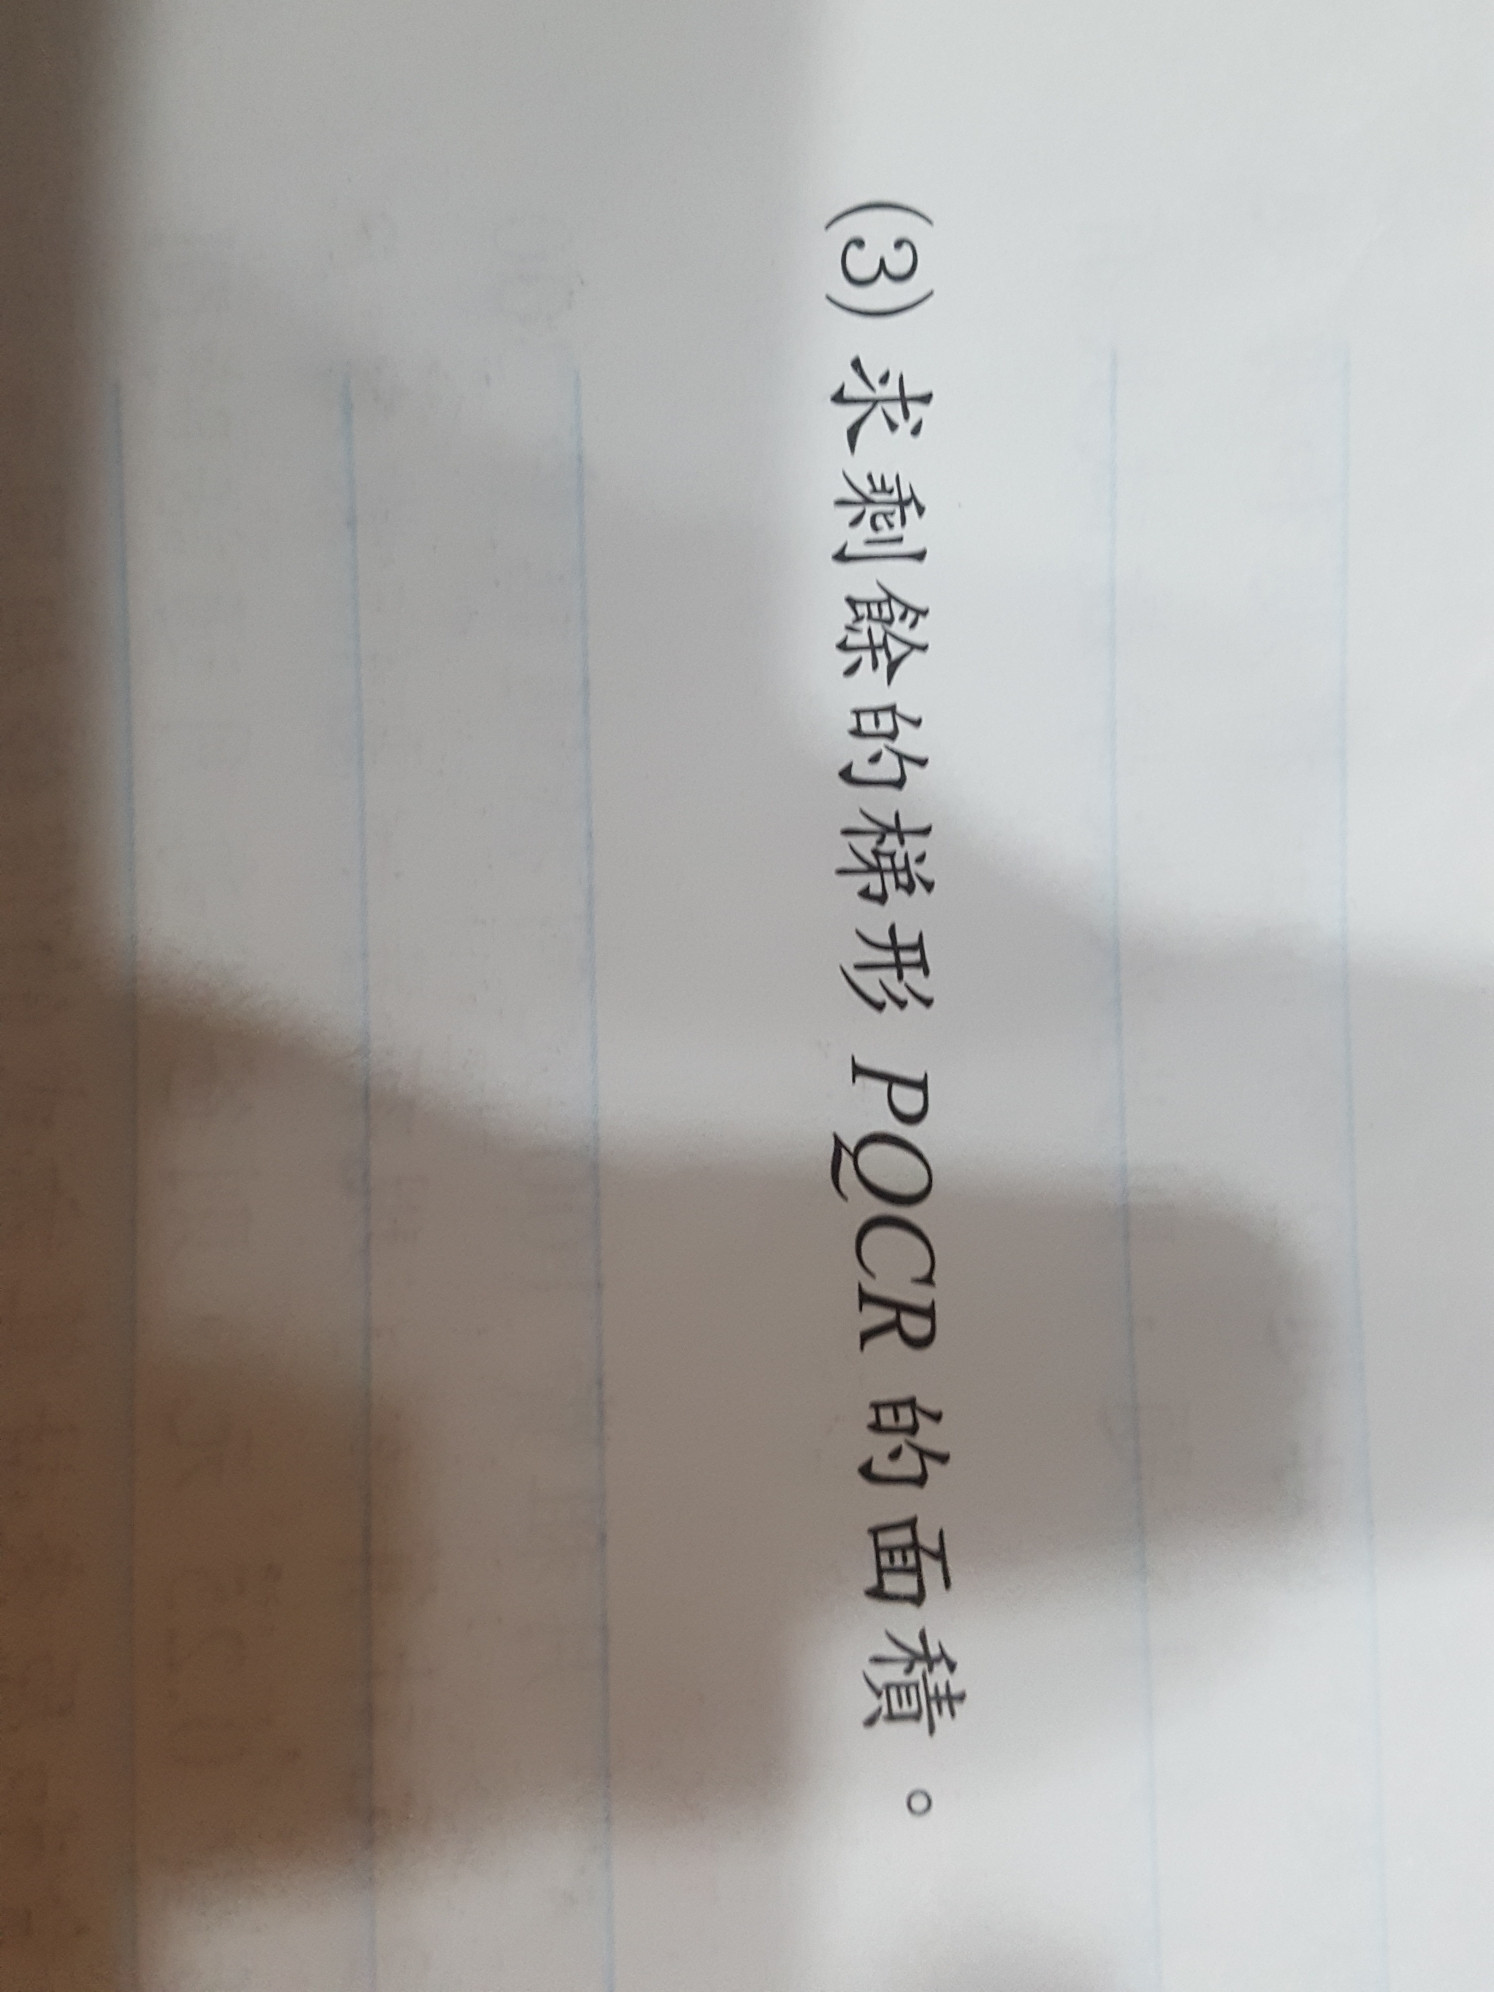 (3) 求剩餘的梯形 PQCR 的面積。